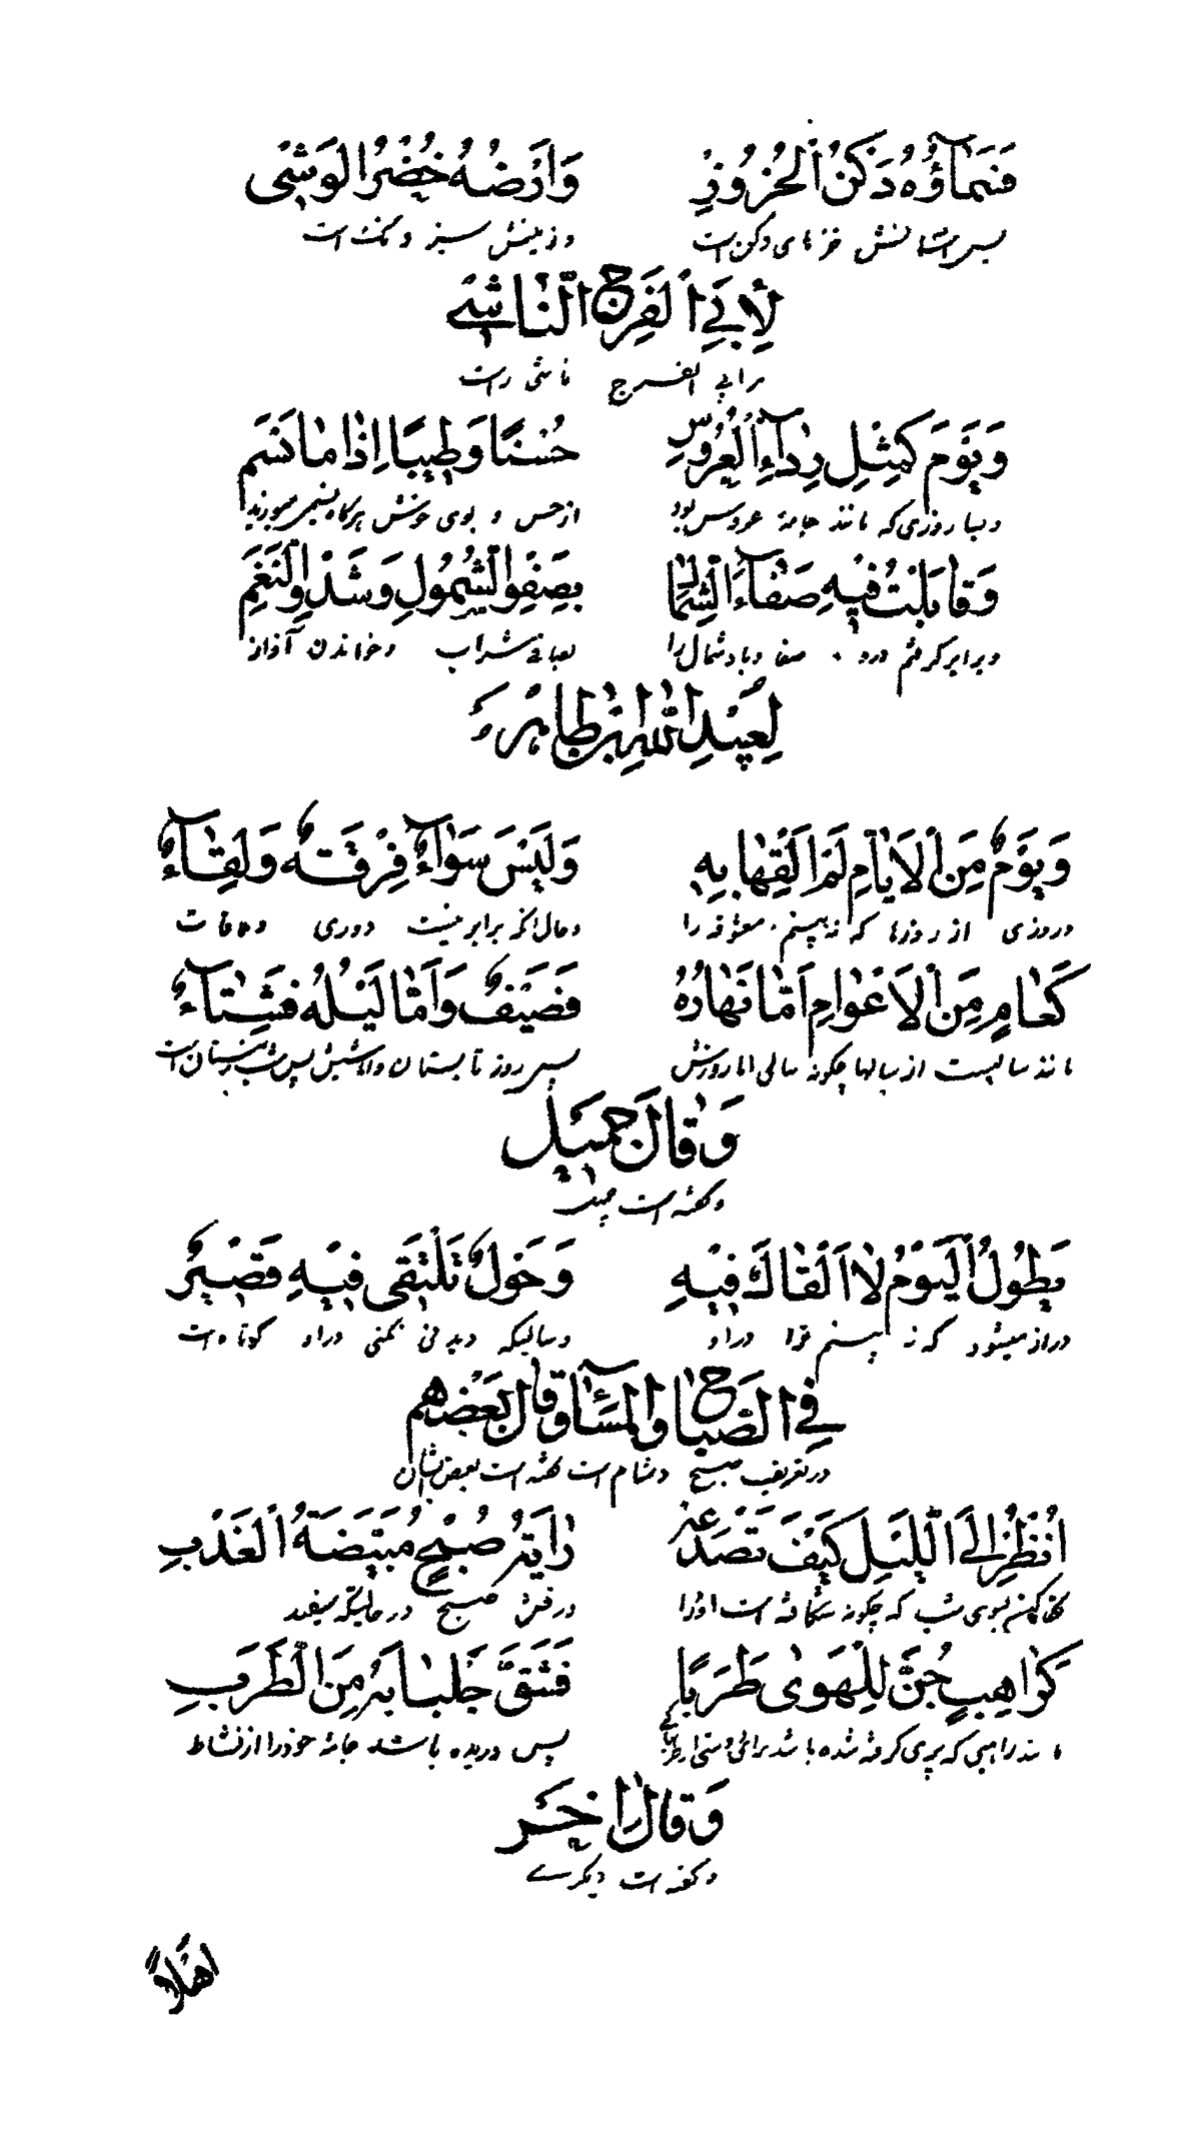 فَسَمَاؤُهُ دَكْنُ الْخُزُوزِ وَاَرْضُهُ خُضْرُ الْوَشْیِ
پس آسمانش خزهای دکن است و زمینش سبز و
لِاَبِي الْفَرَجِ النَّاشِیِ
مرابی الفرج ناشی راست
وَيَوْمَ كَمِثْلِ رِدَآءِ الْعَرُوسِ حُسْنًا وَطِيبًا اِذَا مَا نَسَمَ
و بسا روزی که مانند جامهٔ عروس بود از حسن و بوی خوش هرگاه نسیم میوزید
وَقَابَلْتُ فِيهِ صَفَآءَ الشِّمَالِ بِصَفْوِ الشَّمُولِ وَشَدْوِ النَّغَمِ
و برابر کردم درو صفا و باد شمال را بصافی شراب و خواندن آواز
لِعَبْدِ اللهِ بْنِ طَاهِرٍ
وَيَوْمٌ مِنَ الْاَيَّامِ لَمْ اَلْقَهَا بِهِ وَلَيْسَ سَوَآءٌ فِرْقَتَهٌ وَلِقَآءٌ
و روزی از روزها که نبینم معشوقه را و حال آنکه برابر نیست دوری و ملاقات
كَعَامٍ مِنَ الْاَعْوَامِ اَمَّا نَهَارُهُ فَصَيْفٌ وَاَمَّا لَيْلُهُ فَشِتَآءٌ
مانند سالیست از سالها چگونه سالی اما روزش پس روز تابستان و اما شبش پس شب زمستان است
وَقَالَ جَمِيلُ
و گفته است جمیل
يَطُولُ الْيَوْمُ لَا اَلْقَاكَ فِيهِ وَحَوْلٌ تَلْتَقِی فِيهِ قَصِيْرٌ
دراز میشود که نه بینم ترا دراو و سالیکه دیدنی کنی دراو کوتاه است
فِي الصَّبَاحِ وَالْمَسَآءِ وَقَالَ بَعْضُهُمْ
در تعریف صبح و شام است گفته است بعض ایشان
اُنْظُرْ اِلَی اللَّيْلِ كَيْفَ تَصْدَعُهُ رَايَةُ صُبْحٍ مُبْيَضَّةُ الْعَذَبِ
نگاه کن بسوی شب که چگونه شکافته است او را درفش صبح در حالیکه سفید
كَرَاهِبٍ جُنَّ لِلْهَوٰی طَرَبًا فَشَقَّ جَلْبَابَهُ مِنَ الطَّرَبِ
مانند راهبی که پری گرفته شده باشد برای پس دریده باشد جامهٔ خود را از نشاط
وَقَالَ اٰخَرُ
و گفته است دیگرے
اَهْلًا